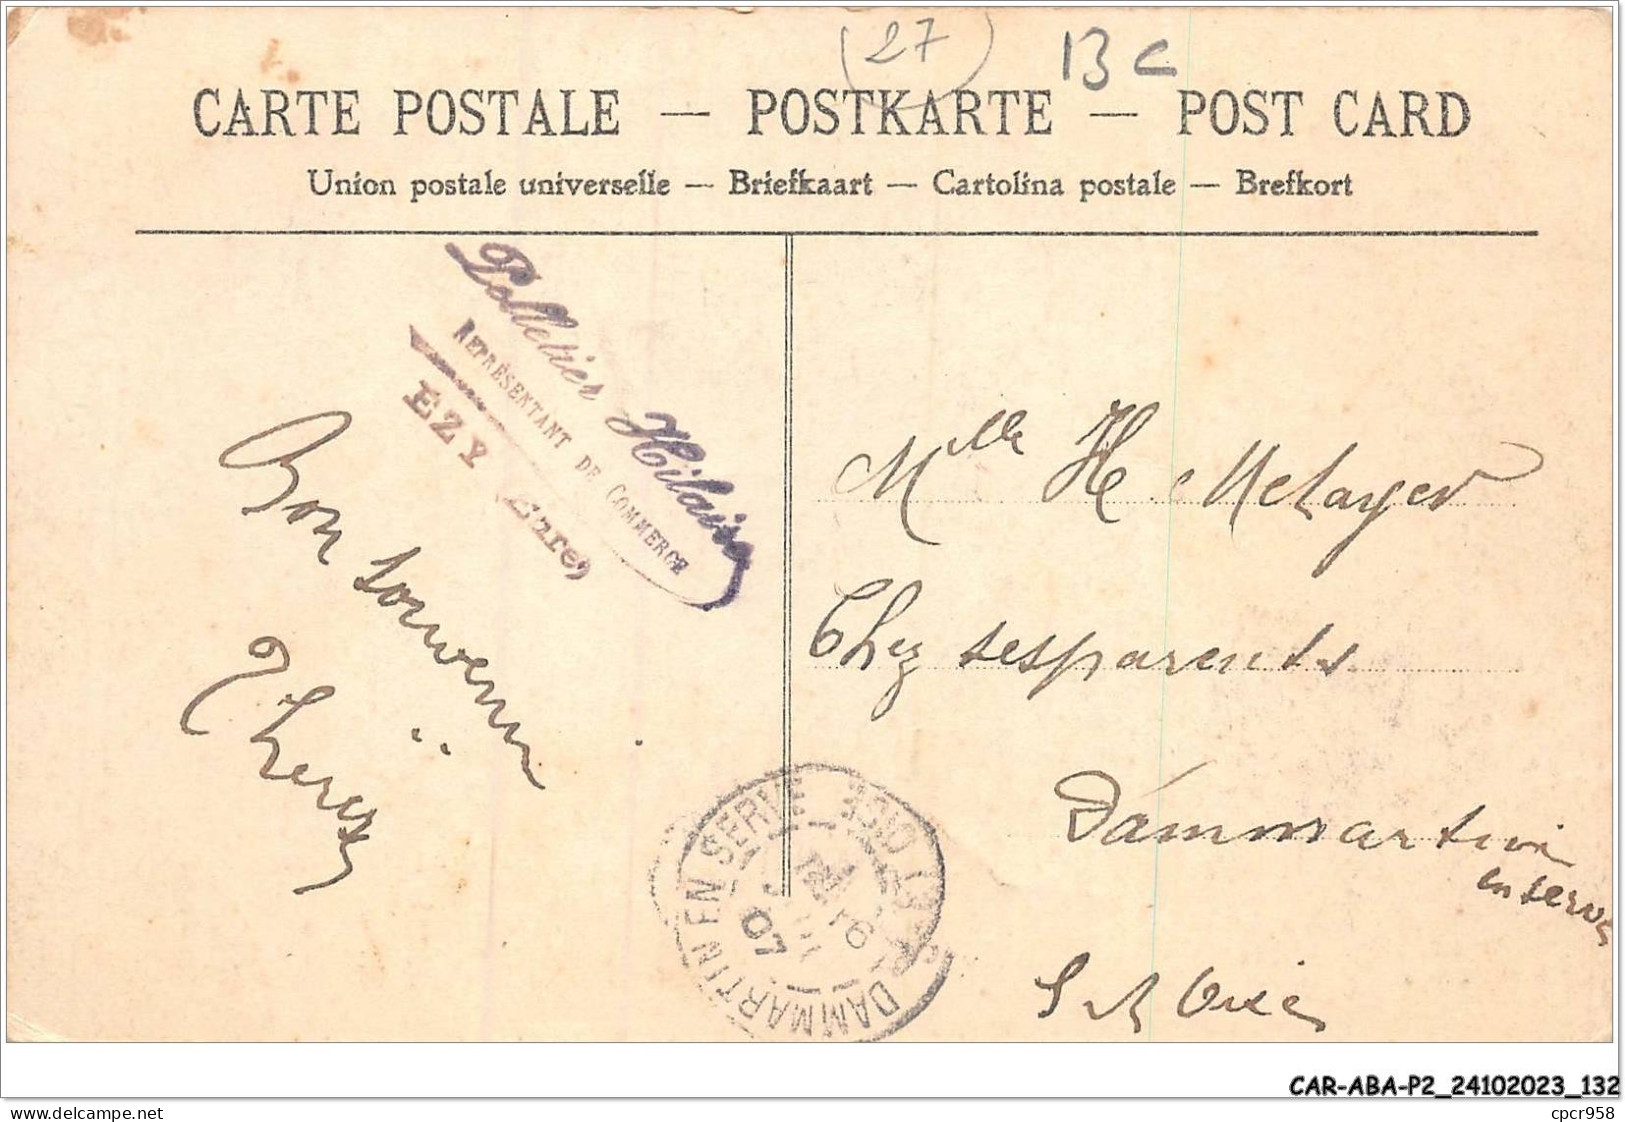 (27) 13 c
CARTE POSTALE — POSTKARTE — POST CARD
Union postale universelle — Briefkaart — Cartolina postale — Brefkort
Pelletier Hilaire
REPRÉSENTANT DE COMMERCE
EZY (Eure)
Bon souvenir
Mlle H Metayer
Chez ses parents
Dammartin
en serve
S et Oise
DAMMARTIN EN SERVE SEINE ET OISE
07
CAR-ABA-P2_24102023_132
delcampe.net
cpcr958